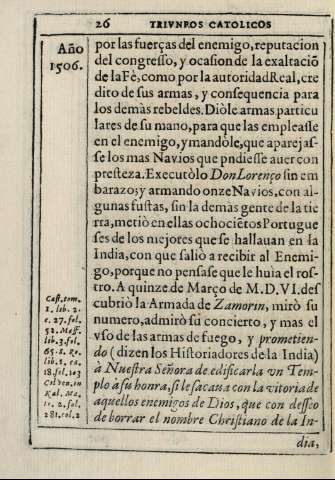 26 TRIVNFOS CATOLICOS
Año
1506.
por las fuerças del enemigo, reputacion
del congresso, y ocasion de la exaltaciõ
de la Fè, como por la autoridad Real, cre
dito de sus armas, y consequencia para
los demàs rebeldes. Diòle armas particu
lares de su mano, para que las empleasse
en el enemigo, y mandòle, que aparejas-
se los mas Navios que pudiesse auer con
presteza. Executòlo Don Lorenço sin em
barazo; y armando onze Navios, con al-
gunas fustas, sin la demàs gente de la tie
rra, metiò en ellas ochociẽtos Portugue
ses de los mejores que se hallauan en la
India, con que saliò a recibir al Enemi-
go, porque no pensase que le huia el ros-
tro. A quinze de Março de M.D.VI. des
cubriò la Armada de Zamorin, mirò su
numero, admirò su concierto, y mas el
vso de las armas de fuego, y prometien-
do (dizen los Historiadores de la India)
à Nuestra Señora de edificarla vn Tem-
plo a su honra, si le sacaua con la vitoria de
aquellos enemigos de Dios, que con desseo
de borrar el nombre Christiano de la In-
dia,
Cast. tom.
1. lib. 2.
c. 27. fol.
52. Maff.
lib. 3. fol.
65. s. Ro.
lib. 1. ca.
18. fol. 103
Kal. Ma.
fol.
281. col. 2